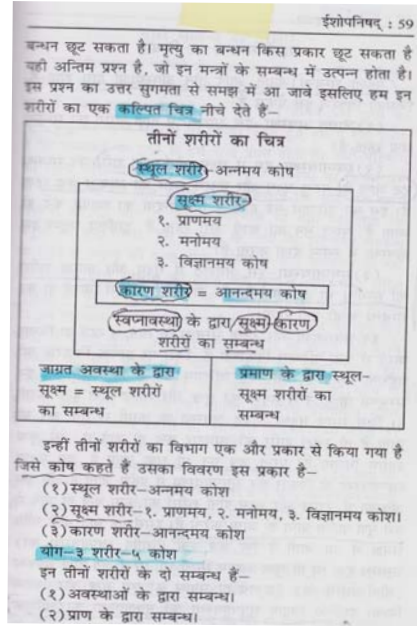 ईशोपनिषद् : 59
बन्धन छूट सकता है। मृत्यु का बन्धन किस प्रकार छूट सकता है
यही अन्तिम प्रश्न है, जो इन मन्त्रों के सम्बन्ध में उत्पन्न होता है।
इस प्रश्न का उत्तर सुगमता से समझ में आ जावे इसलिए हम इन
शरीरों का एक कल्पित चित्र नीचे देते हैं–
तीनों शरीरों का चित्र
स्थूल शरीर-अन्नमय कोष
सूक्ष्म शरीर-
१. प्राणमय
२. मनोमय
३. विज्ञानमय कोष
कारण शरीर = आनन्दमय कोष
स्वप्नावस्था के द्वारा सूक्ष्म-कारण
शरीरों का सम्बन्ध
जाग्रत अवस्था के द्वारा
सूक्ष्म = स्थूल शरीरों
का सम्बन्ध
प्रमाण के द्वारा स्थूल-
सूक्ष्म शरीरों का
सम्बन्ध
इन्हीं तीनों शरीरों का विभाग एक और प्रकार से किया गया है
जिसे कोष कहते हैं उसका विवरण इस प्रकार है–
(१) स्थूल शरीर-अन्नमय कोश
(२) सूक्ष्म शरीर-१. प्राणमय, २. मनोमय, ३. विज्ञानमय कोश।
(३) कारण शरीर-आनन्दमय कोश
योग-३ शरीर-५ कोश
इन तीनों शरीरों के दो सम्बन्ध हैं-
(१) अवस्थाओं के द्वारा सम्बन्ध।
(२) प्राण के द्वारा सम्बन्ध।